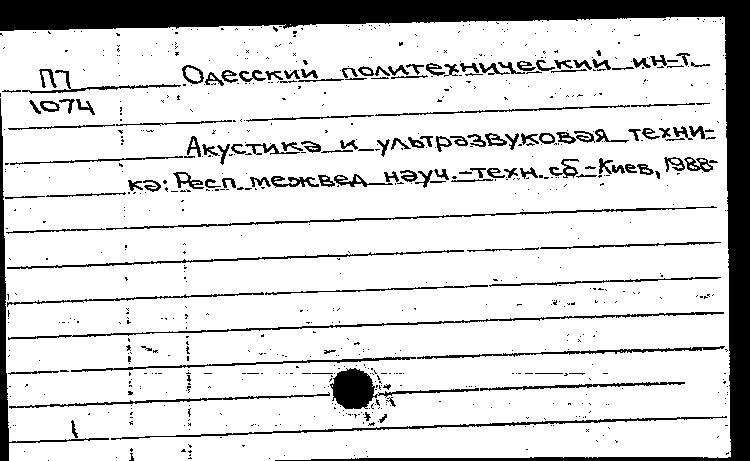 П7 Одесский политехнический ин-т.
1074
Акустика и ультразвуковая техни-
ка: Респ. межвед. науч.-техн. сб. - Киев, 1988-
1